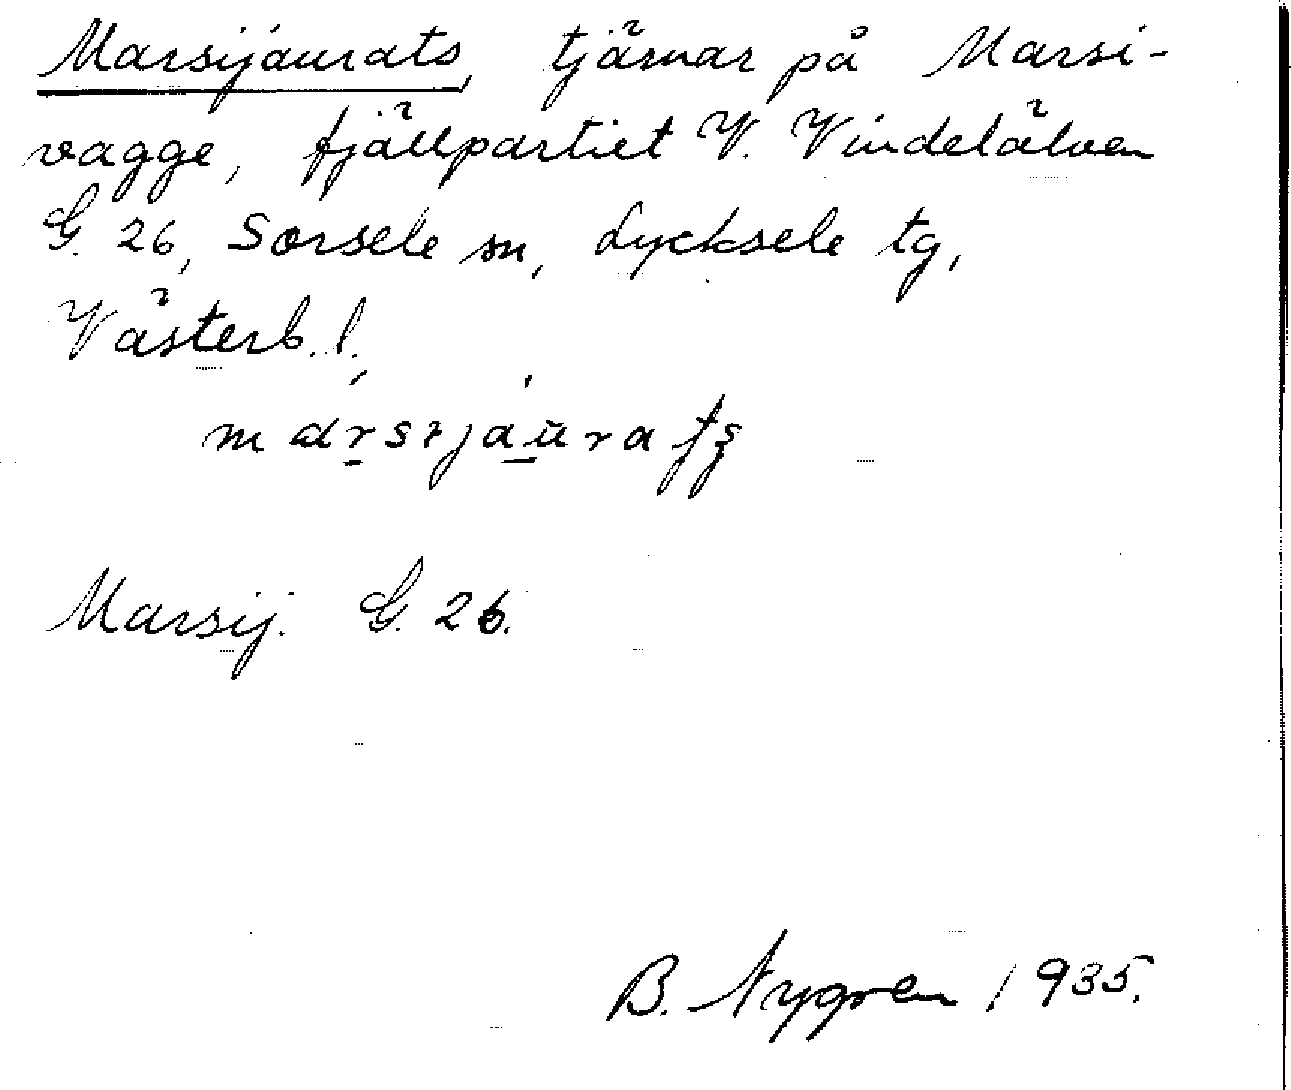 Marsijaurats, tjärnar på Marsi-
vagge, fjällpartiet V. Vindelälven
G. 26, Sorsele sn, Lycksele tg,
Västerb. l.
Marsij. G. 26.
B. Nygren 1935.